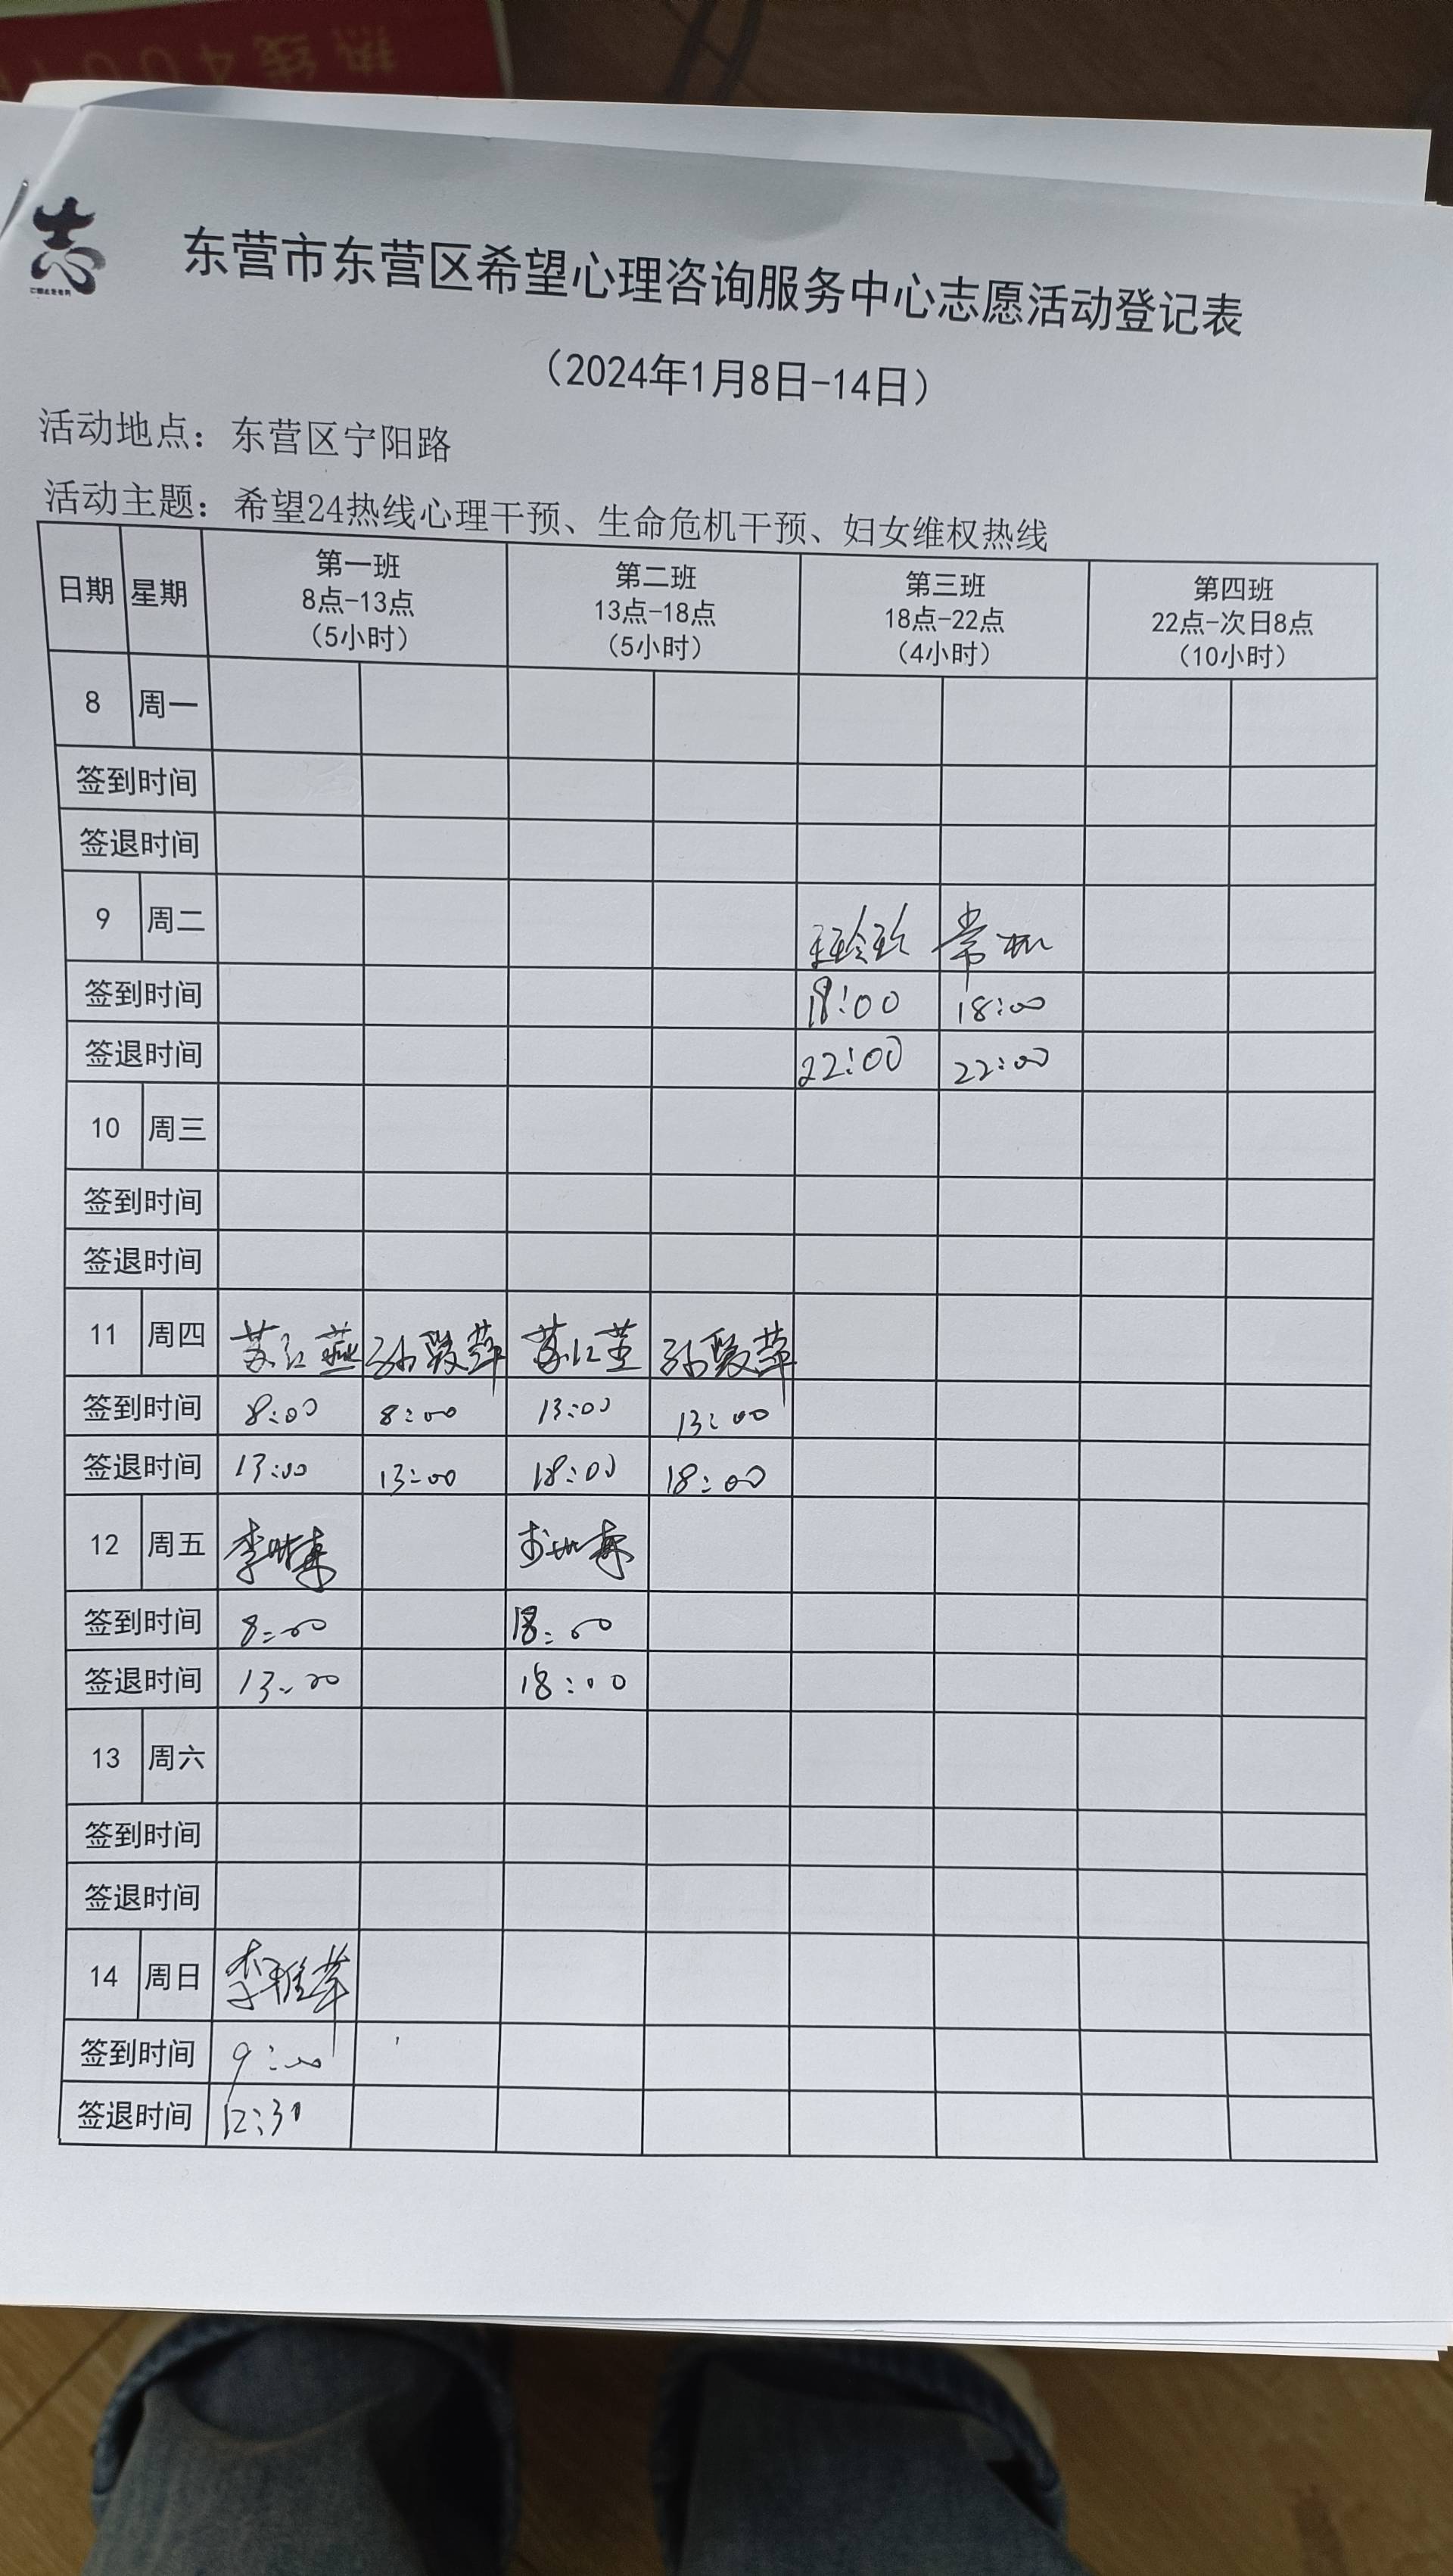 热线400
志
东营市东营区希望心理咨询服务中心志愿活动登记表
（2024年1月8日-14日）
活动地点：东营区宁阳路
活动主题：希望24热线心理干预、生命危机干预、妇女维权热线
日期 星期 第一班 8点-13点 （5小时） 第二班 13点-18点 （5小时） 第三班 18点-22点 （4小时） 第四班 22点-次日8点 （10小时）
8 周一
签到时间
签退时间
9 周二 王玲玲 常
签到时间 18:00 18:00
签退时间 22:00 22:00
10 周三
签到时间
签退时间
11 周四 苏红燕 孙 萍 苏红 孙 萍
签到时间 8:00 8:00 13:00 13:00
签退时间 13:00 13:00 18:00 18:00
12 周五 李
签到时间 8:00 :00
签退时间 13:00 18:00
13 周六
签到时间
签退时间
14 周日 李雅萍
签到时间 9:00
签退时间 12:30